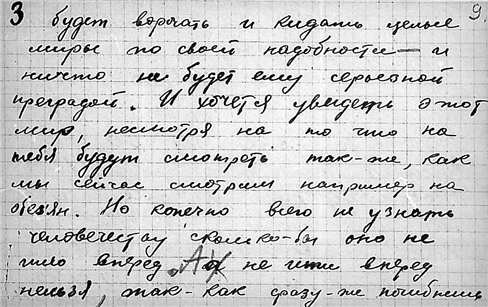 3 будет ворочать и кидать целые 9.
миры по своей надобности — и
ничто не будет ему серьезной
преградой. И хочется увидеть этот
мир, несмотря на то что на
тебя будут смотреть так-же, как
мы сейчас смотрим например на
обезян. Но конечно всего не узнать
человечеству сколько-бы оно не
шло вперед. А не итти вперед
нельзя, так-как сразу-же погибнешь